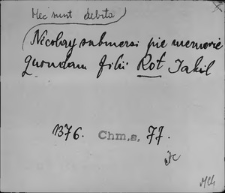 Hec sunt debita
(Nicolay submersi pie memorie
quondam filii Rot Jakil
1376. Chm.s. 77.